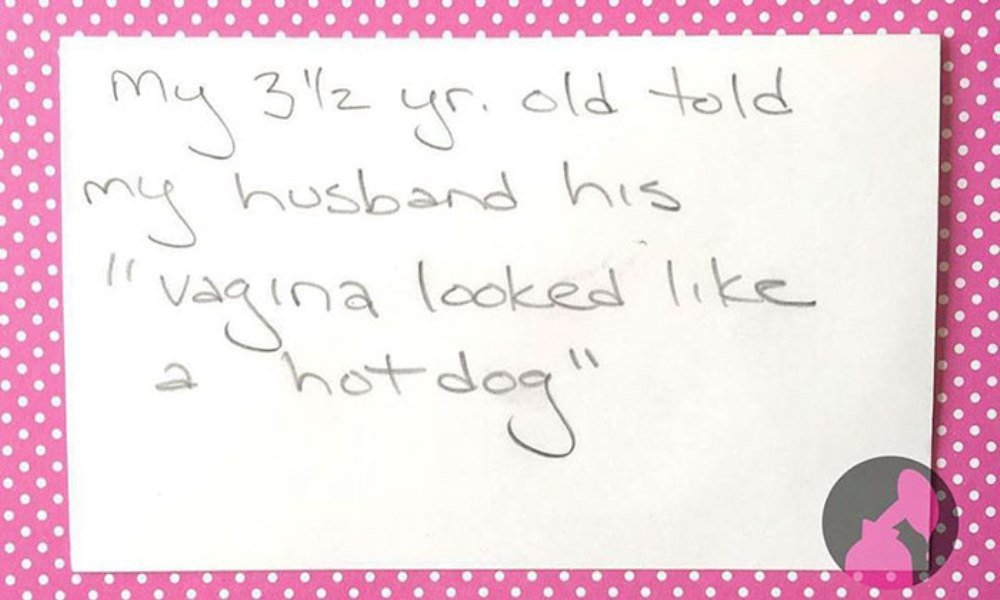 My 3 1/2 yr. old told
my husband his
"vagina looked like
a hotdog"